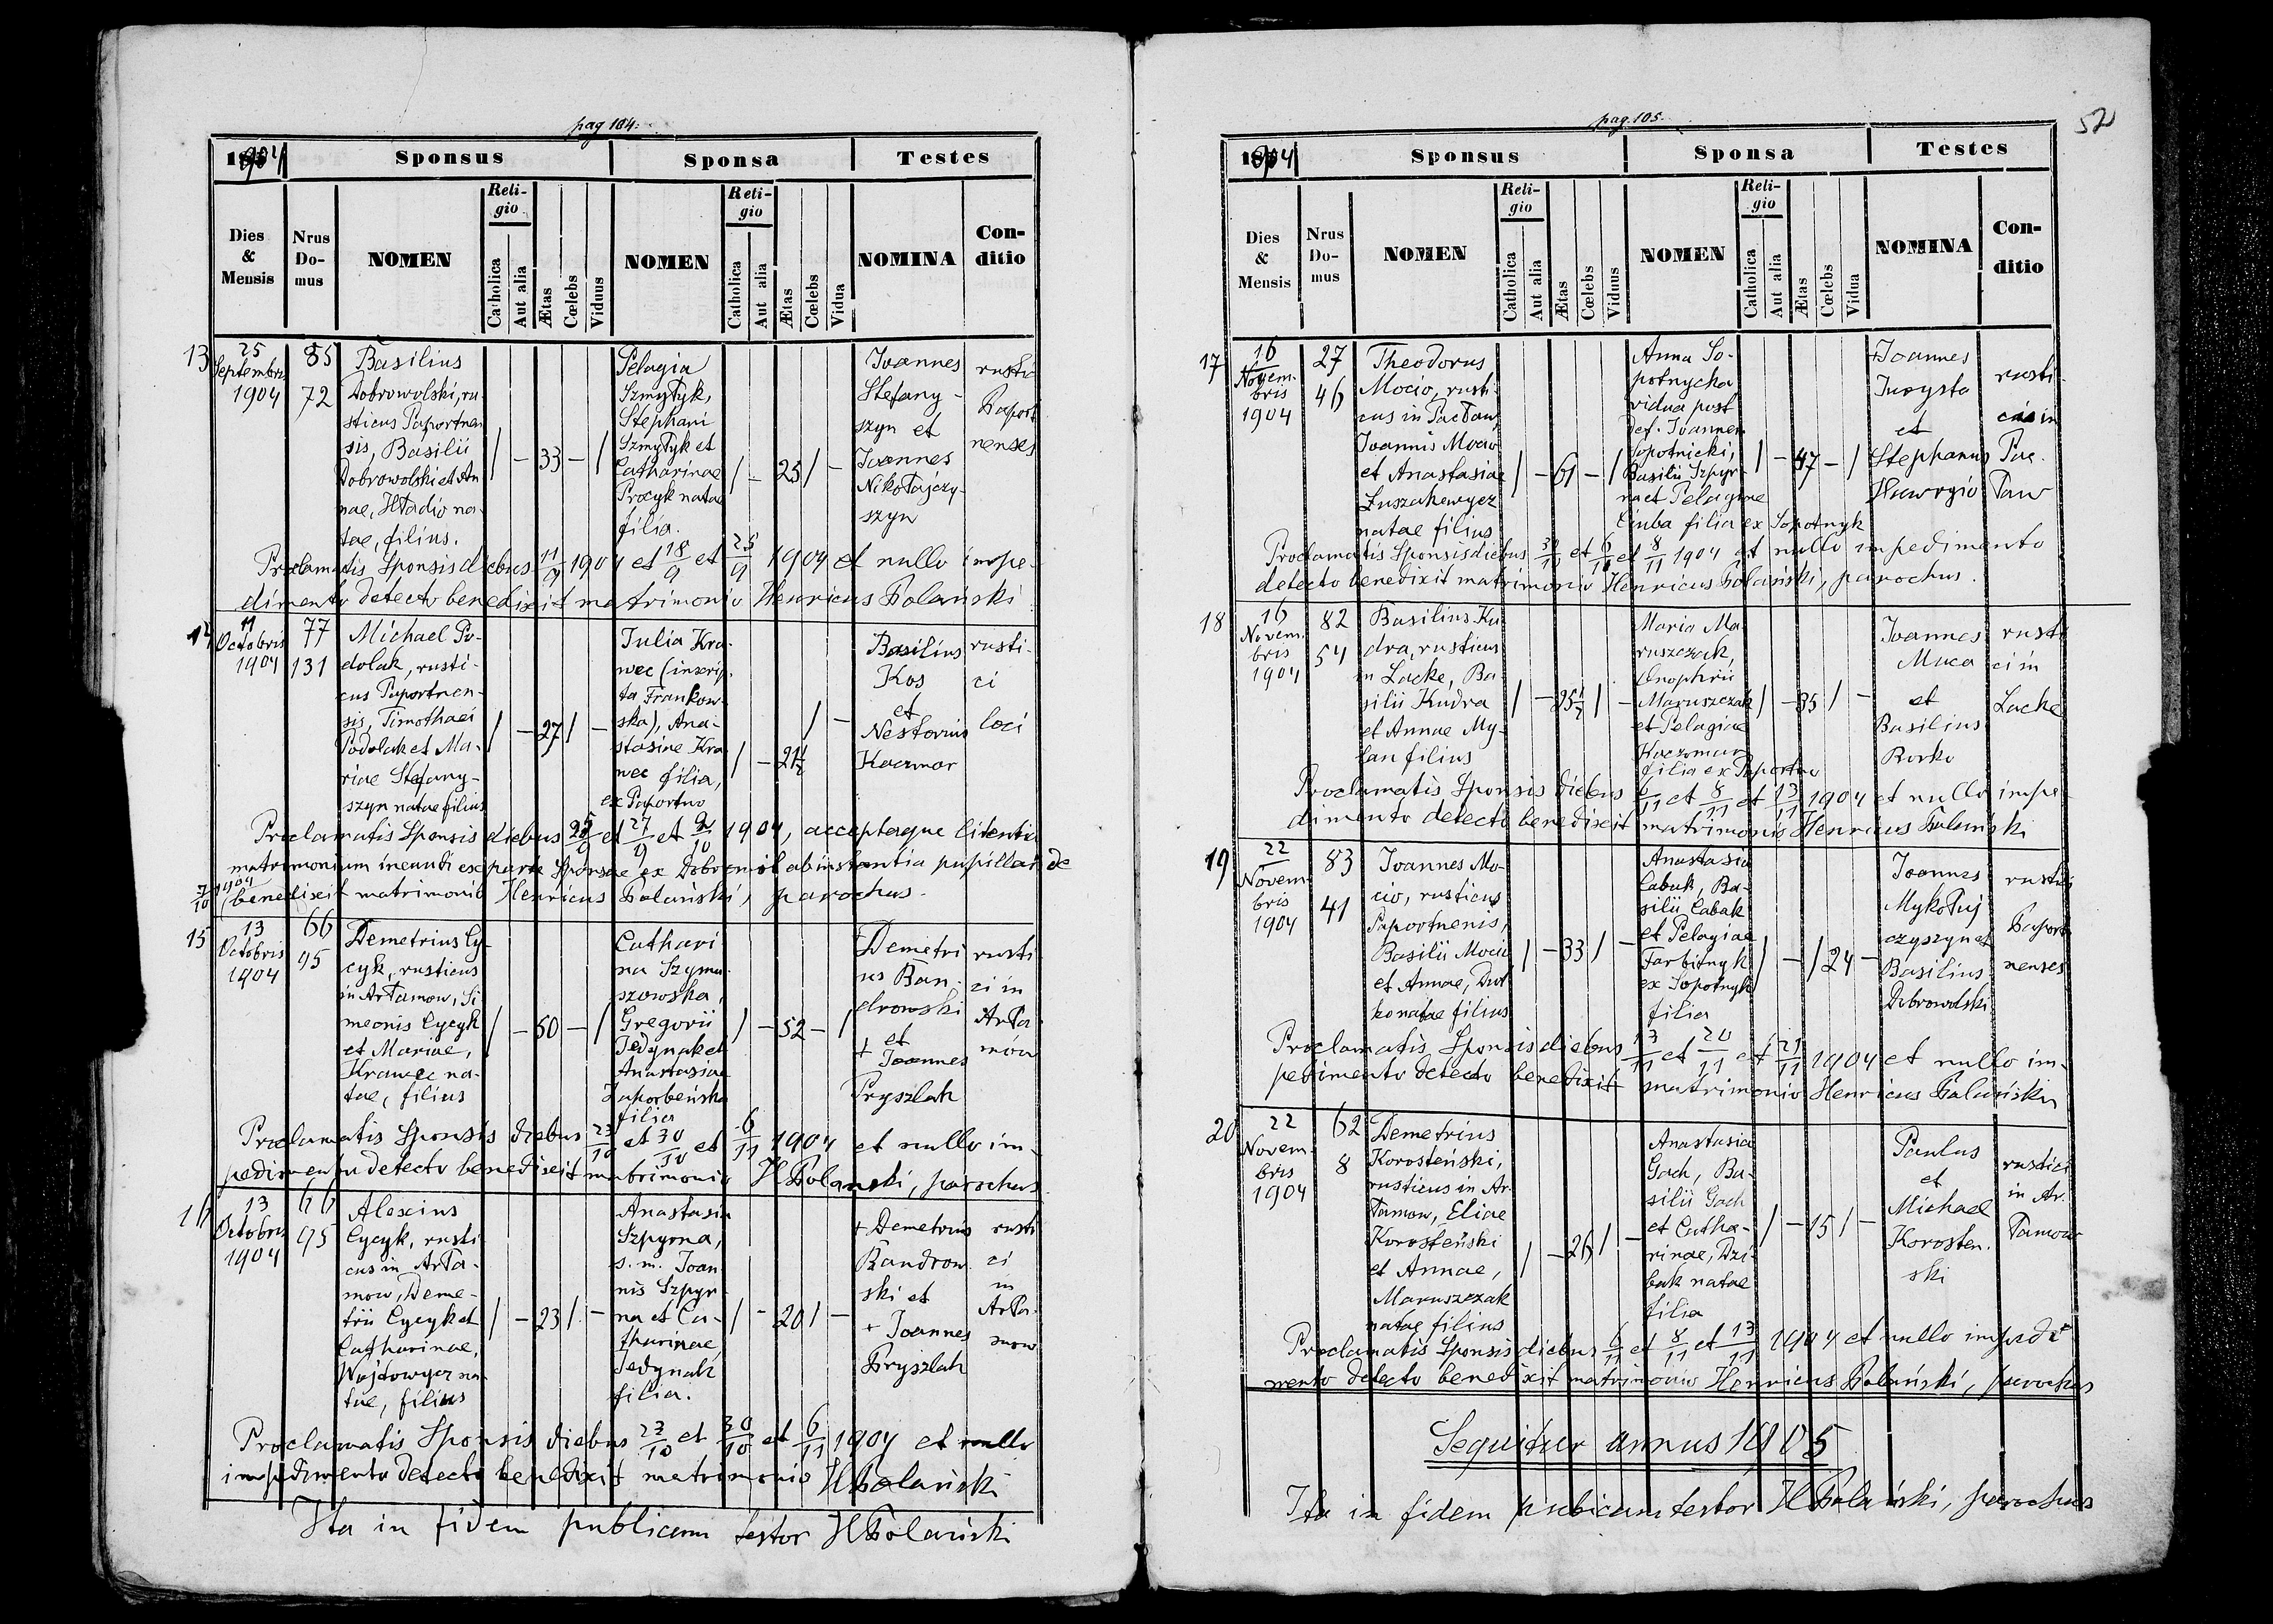 pag 104:
1904
Sponsus
Sponsa
Testes
Dies & Mensis
Nrus Do- mus
NOMEN
Reli- gio
Catholica
Aut alia
Ætas
Cœlebs
Viduus
NOMEN
Reli- gio
Catholica
Aut alia
Ætas
Cœlebs
Vidua
NOMINA
Con- ditio
13
25
Septembris
1904
85
72
Basilius
Dobrowolski, ru
sticus Paportnen
sis, Basilii
Dobrowolski et An
nae, Hladio na-
tae, filius.
/ - 33 - /
Pelagia
Szmytyk,
Stephani
Szmytyk et
Catharinae
Procyk natae
filia.
/ - 25 / -
Joannes
Stefany-
szyn et
Joannes
Nikołajczy-
szyn
rusti
Paport
nenses
Proclamatis Sponsis diebus 11/9 1904 et 18/9 et 25/9 1904 et nullo impe-
dimento detecto benedixit matrimonio Henricus Polański
14
11
Octobris
1904
77
131
Michael Po-
dolak, rusti-
cus Paportnen-
sis, Timothaei
Podolak et Ma-
riae Stefany-
szyn natae filius
/ - 27 / -
Julia Kra-
wec (inscrip-
ta Frankow-
ska), Ana-
stasiae Kra
wec filia,
ex Paportno
/ - 21½ / -
Basilius
Kos
et
Nestorius
Kaczmar
rusti-
ci
loci
Proclamatis Sponsis diebus 25/9 et 27/9 et 2/10 1904, acceptaque licentia
matrimonium ineundi ex parte Sponsae ex Dobromil ab instantia pupillar de
7/10 1904 benedixit matrimonio Henricus Polański, parochus.
15
13
Octobris
1904
66
95
Demetrius Cy-
cyk, rusticus
in Artamow, Si
meonis Cycyk
et Mariae,
Krawec na-
tae, filius
/ - 50 - /
Cathari
na Szyma-
szowska,
Gregorii
Jedynak et
Anastasiae
filia
/ - 52 - /
Demetri
us Ban-
drowski
et
+ Joannes
Pryszlak
rusti
ci in
Arta
mów
Proclamatis Sponsis diebus 23/10 et 30/10 et 6/11 1904 et nullo im-
pedimento detecto benedixit matrimonio H Polański, parochus
16
13
Octobris
1904
66
95
Alexius
Cycyk, rusti
cus in Arta-
mow, Deme-
trii Cycyk et
Catharinae,
Wojtowycz na-
tae, filius
/ - 23 / -
Anastasia
Szpyrna,
s. m. Joan-
nis Szpyr-
na et Ca-
tharinae,
Jedynak
filia.
/ - 20 / -
+ Demetrius
Bandrow
ski et
+ Joannes
Pryszlak
rusti
ci
in
Arta-
mow
Proclamatis Sponsis diebus 23/10 et 30/10 et 6/11 1904 et nullo
impedimento detecto benedixit matrimonio H Polański
Ita in fidem publicam testor H Polański
pag. 105.
52
1904
Sponsus
Sponsa
Testes
Dies & Mensis
Nrus Do- mus
NOMEN
Reli- gio
Catholica
Aut alia
Ætas
Cœlebs
Viduus
NOMEN
Reli- gio
Catholica
Aut alia
Ætas
Cœlebs
Vidua
NOMINA
Con- ditio
17
16
Novem-
bris
1904
27
46
Theodorus
Mocio, rusti-
cus in Pacław,
Joannis Mocio
et Anastasiae
Łuszakewycz
natae filius
/ - 61 - /
Anna So-
potnycka
vidua post
def. Joannem
Sopotnicki,
Basilii Szpyr-
na et Pelagiae
Ciuba filia ex Sopotnyk
/ - 47 - /
+Joannes
Jurysta
et
Stephanus
rusti-
ci in
Pac-
ław
Proclamatis Sponsis diebus 30/10 et 6/11 et 8/11 1904 et nullo impedimento
detecto benedixit matrimonio Henricus Polański, parochus.
18
16
Novem-
bris
1904
82
54
Basilius Ku
dra, rusticus
in Lacke, Ba
silii Kudra
et Annae My-
lan filius
/ - 25½ / -
Maria Ma
ruszczak,
Onophrii
Maruszczak
et Pelagiae
Kaczmar
filia ex Paportno
/ - 35 / -
Joannes
Muca
et
Basilius
Borko
rusti
ci in
Lacke
Proclamatis Sponsis diebus 6/11 et 8/11 et 13/11 1904 et nullo impe-
dimento detecto benedixit matrimonio Henricus Polański
19
22
Novem-
bris
1904
83
41
Joannes Mo-
cio, rusticus
Paportnensis,
Basilii Mocio
et Annae, Dut
ko natae filius
/ - 33 / -
Anastasia
Cabak, Ba-
silii Cabak
et Pelagiae
Farbitnyk
ex Sopotnyk
filia
/ - / 24 -
Joannes
Mykołaj
czyszyn et
Basilius
Dobrowolski
rustici
Paport
nenses
Proclamatis Sponsis diebus 13/11 et 20/11 et 21/11 1904 et nullo im-
pedimento detecto benedixit matrimonio Henricus Polański
20
22
Novem-
bris
1904
62
8
Demetrius
Korosteński,
rusticus in Ar-
tamow, Eliae
Korosteński
et Annae,
Maruszczak
natae filius
/ - 26 / -
Anastasia
Gach, Ba-
silii Gach
et Catha-
rinae, Dzi-
bak natae
filia
/ - 15 / -
Paulus
et
Michael
Korosten-
ski
rustici
in Ar-
tamow
Proclamatis Sponsis diebus 6/11 et 8/11 et 13/11 1904 et nullo impedi
mento detecto benedixit matrimonio Henricus Polański, parochus
Sequitur annus 1905
Ita in fidem pubicam testor H Polański, parochus